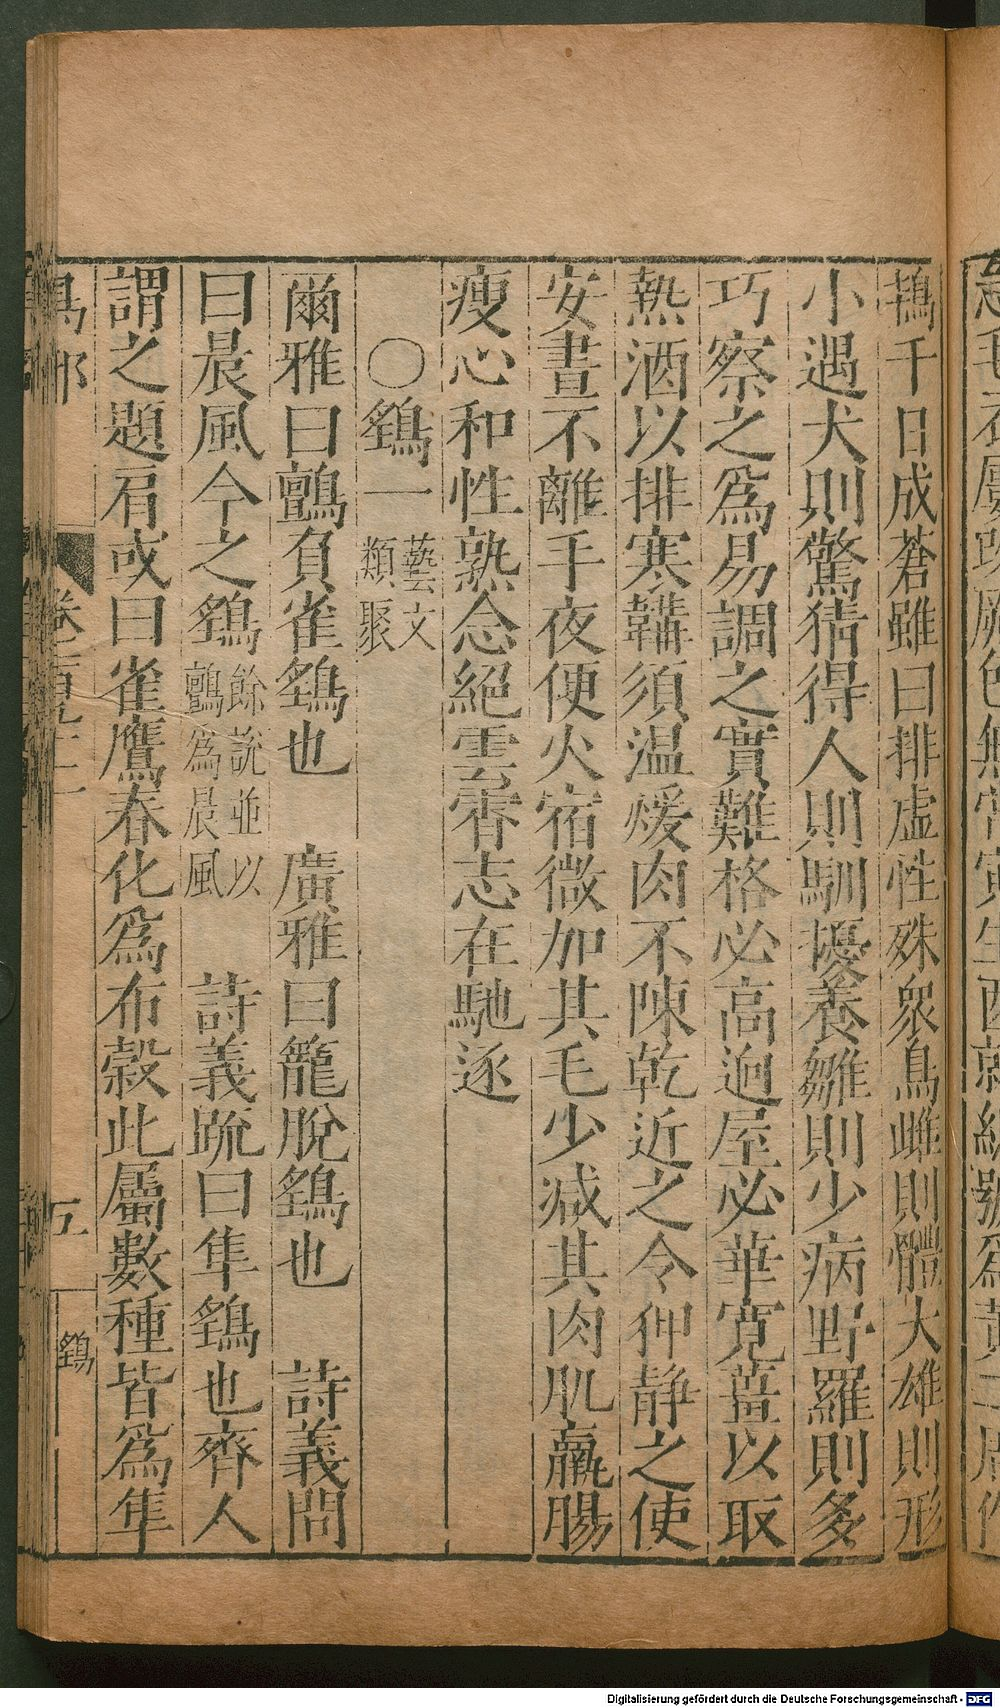 鴘千日成蒼雖曰排虛性殊衆鳥雌則體大雄則形
小遇犬則驚猜得人則馴擾養雛則少病野羅則多
巧察之爲易調之實難格必高迥屋必華寛薑以取
熱酒以排寒鞲須温煖肉不陳乾近之令狎静之使
安晝不離手夜便火宿微加其毛少減其肉肌羸腸
瘦心和性熟念絕雲霄志在馳逐
〇鷂一 藝文類聚
爾雅曰鸇負雀鷂也 廣雅曰籠脫鷂也 詩義問
曰晨風今之鷂 餘說並以鸇爲晨風 詩義疏曰隼鷂也齊人
謂之題肩或曰雀鷹春化爲布穀此屬數種皆爲隼
五
鷂
Digitalisierung gefördert durch die Deutsche Forschungsgemeinschaft - DFG